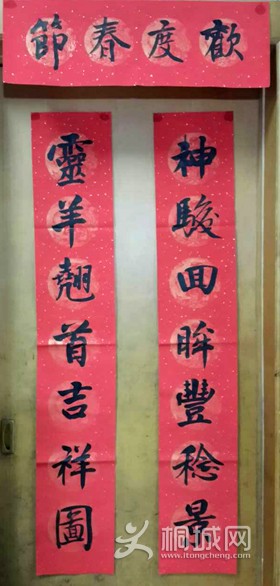 歡度春節
神駿回眸豐稔景
靈羊翹首吉祥圖
桐城网
www.itongcheng.com